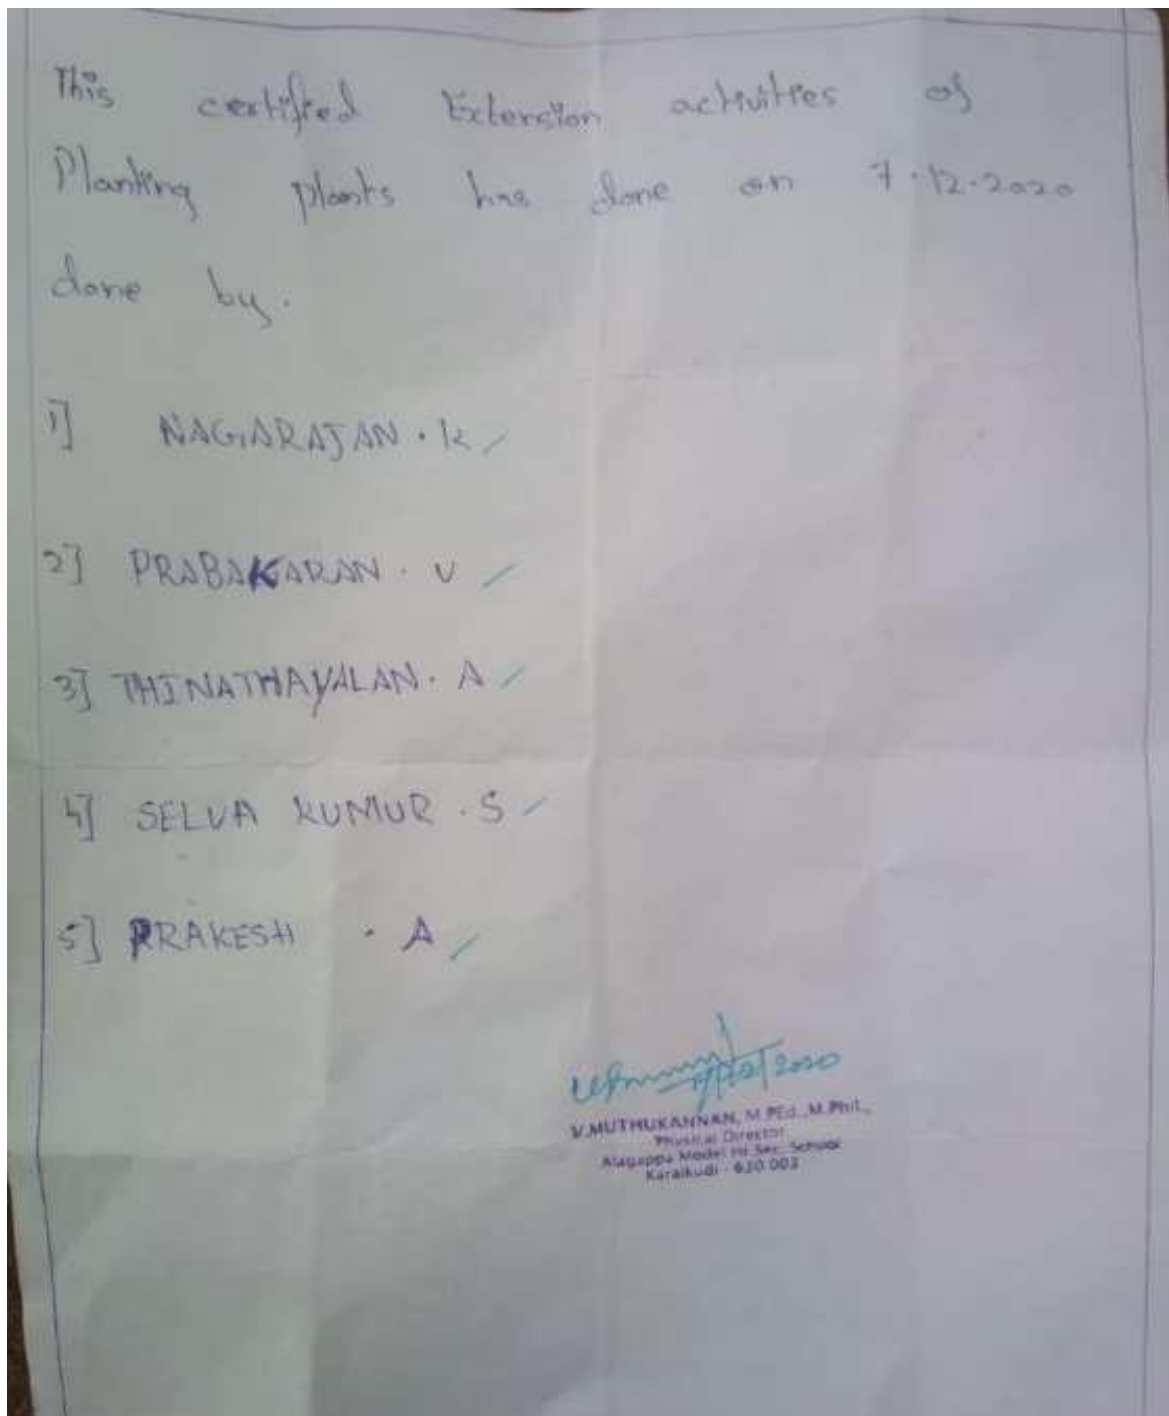 This certified Extension activities of
Planting plants has done on 7.12.2020
done by.
1] NAGARAJAN . K
2] PRABAKARAN . V
3] THINATHAYALAN . A
4] SELVA KUMUR . S
5] PRAKESH . A
/12/2020
V.MUTHUKANNAN, M.PEd.,M.Phil.,
Physical Director
Alagappa Model Hr.Sec. School
Karaikudi - 630 003